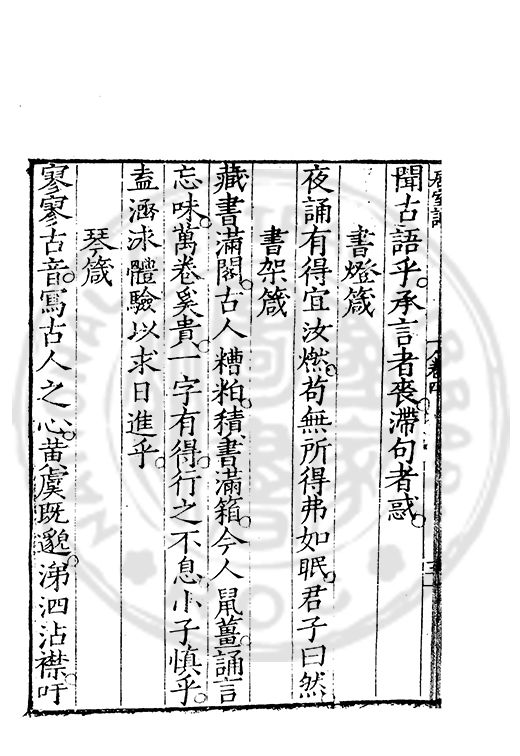 聞古語乎。承言者喪。滯句者惑。
書燈箴
夜誦有得宜汝燃。苟無所得弗如眠。君子曰然
書架箴
藏書滿閣。古人糟粕。積書滿箱。今人鼠薑。誦言
忘味。萬卷奚貴。一字有得。行之不息。小子慎乎。
盍涵泳體驗以求日進乎。
琴箴
寥寥古音。寫古人之心。黃虞既邈。涕泗沾襟。吁